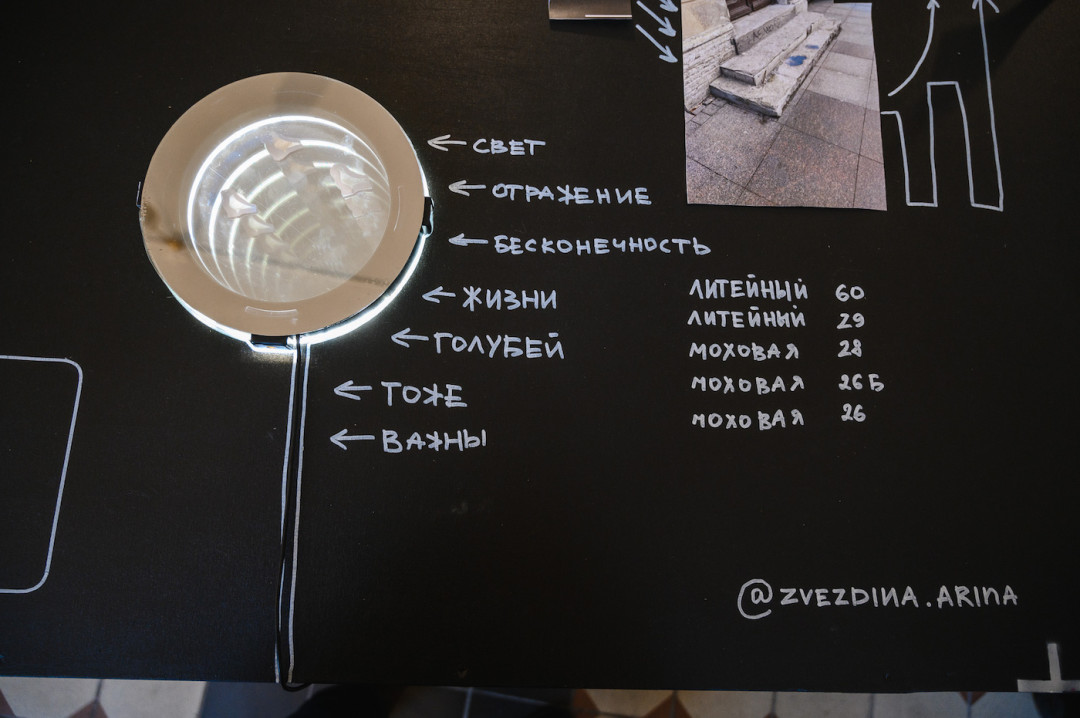 СВЕТ
ОТРАЖЕНИЕ
БЕСКОНЕЧНОСТЬ
ЖИЗНИ
ГОЛУБЕЙ
ТОЖЕ
ВАЖНЫ
ЛИТЕЙНЫЙ 60
ЛИТЕЙНЫЙ 29
МОХОВАЯ 28
МОХОВАЯ 26Б
МОХОВАЯ 26
@ZVEZDINA.ARINA